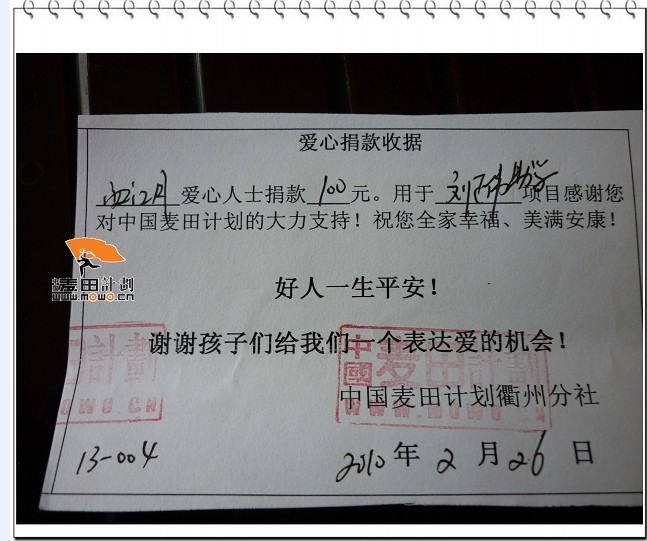 爱心捐款收据
西江月 爱心人士捐款 100 元。用于 刘 助学 项目感谢您
对中国麦田计划的大力支持！祝您全家幸福、美满安康！
麦田计划
www.mowo.cn
好人一生平安！
谢谢孩子们给我们一个表达爱的机会！
计劃
OWO.CN
中國麦田计劃
WWW.MOWO.CN
中国麦田计划衢州分社
13-004
2010 年 2 月 26 日